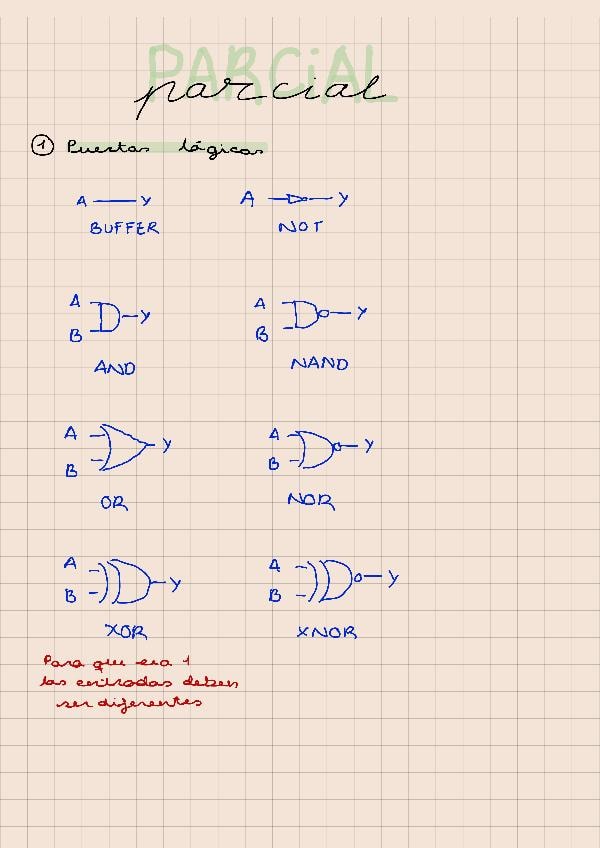 PARCiAL
parcial
1 Puertas lógicas
A Y A Y
BUFFER NOT
A Y A Y
B B
AND NAND
A Y A Y
B B
OR NOR
A Y A Y
B B
XOR XNOR
Para que sea 1
las entradas deben
ser diferentes